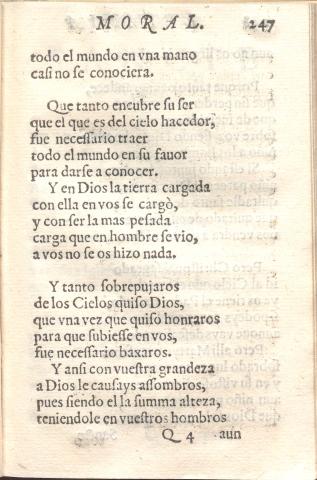 MORAL. 247
todo el mundo en vna mano
casi no se conociera.
Que tanto encubre su ser
que el que es del cielo hacedor,
fue necessario traer
todo el mundo en su fauor
para darse a conocer.
Y en Dios la tierra cargada
con ella en vos se cargò,
y con ser la mas pesada
carga que en hombre se vio,
a vos no se os hizo nada.
Y tanto sobrepujaros
de los Cielos quiso Dios,
que vna vez que quisò honraros
para que subiesse en vos,
fue necessario baxaros.
Y ansi con vuestra grandeza
a Dios le causays assombros,
pues siendo el la summa alteza,
teniendole en vuestros hombros
Q 4 aun